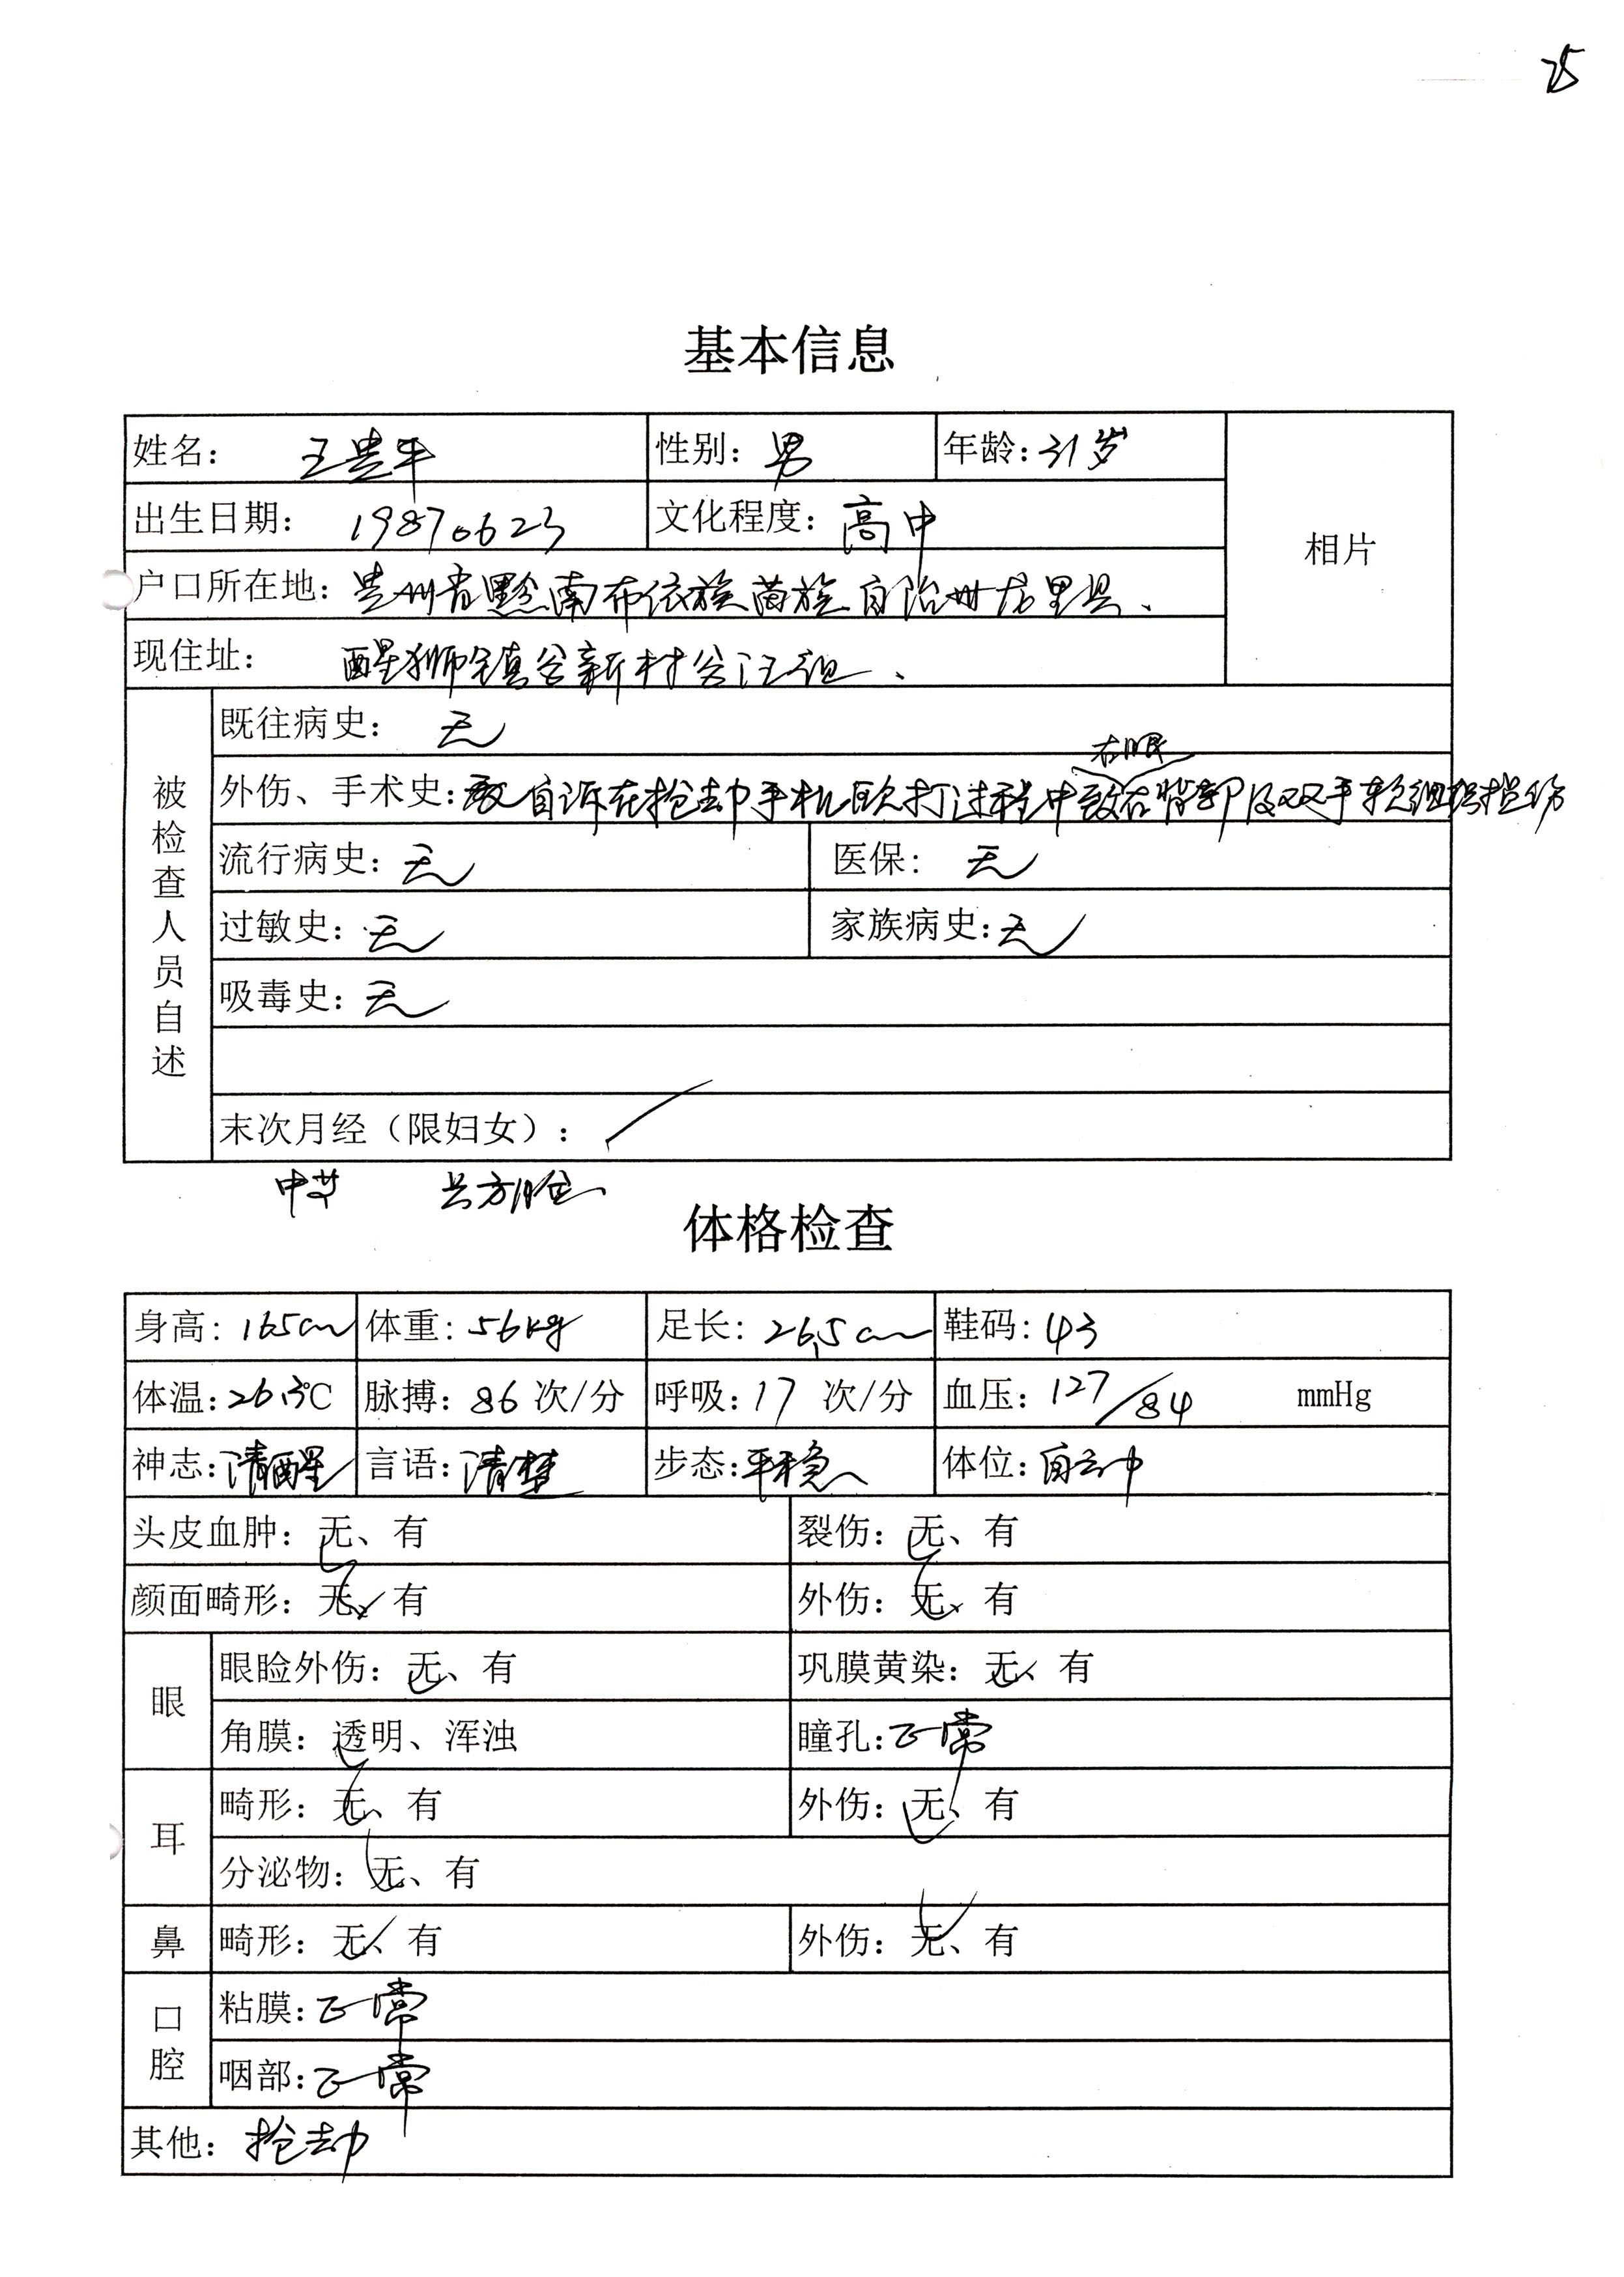 25
基本信息
姓名： 王贵平 性别：男 年龄：31岁
出生日期：19870623 文化程度：高中 相片
户口所在地：贵州省黔南布依族苗族自治州龙里县、
现住址：醒狮镇谷新村谷汪组、
被检查人员自述
既往病史：无
右眼
外伤、手术史：自诉在抢劫手机殴打过程中致右背部及双手软组织挫伤
流行病史：无 医保：无
过敏史：无 家族病史：无
吸毒史：无
末次月经（限妇女）：
体格检查
身高：165cm 体重：56kg 足长：26.5cm 鞋码：43
体温：26.3℃ 脉搏：86 次/分 呼吸：17 次/分 血压：127/84 mmHg
神志：清醒 言语：清楚 步态：平稳 体位：自动
头皮血肿：无、有 裂伤：无、有
颜面畸形：无、有 外伤：无、有
眼 眼睑外伤：无、有 巩膜黄染：无、有
角膜：透明、浑浊 瞳孔：正常
耳 畸形：无、有 外伤：无、有
分泌物：无、有
鼻 畸形：无、有 外伤：无、有
口腔 粘膜：正常
咽部：正常
其他：抢劫